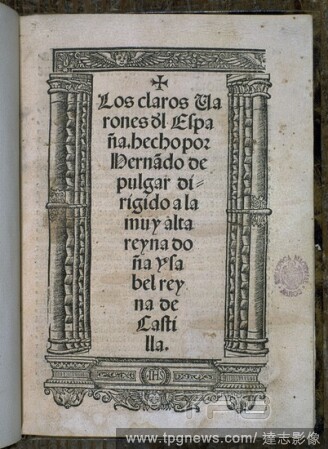 ✠
Los claros Ua
rones dl Espa
ña. hecho por
Hernãdo de
pulgar di⸗
rigido a la
muy alta
reyna do
ña ysa
bel rey
na de
Casti
lla.
IHS
www.tpgnews.com/ 達志影像